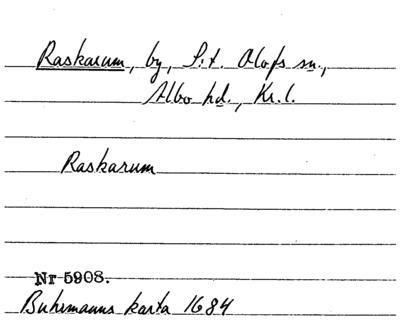 Raskarum, by, S:t. Olofs sn.,
Albo hd., Kr.l.
Raskarum
Nr 5908.
Buhrmanns karta 1684